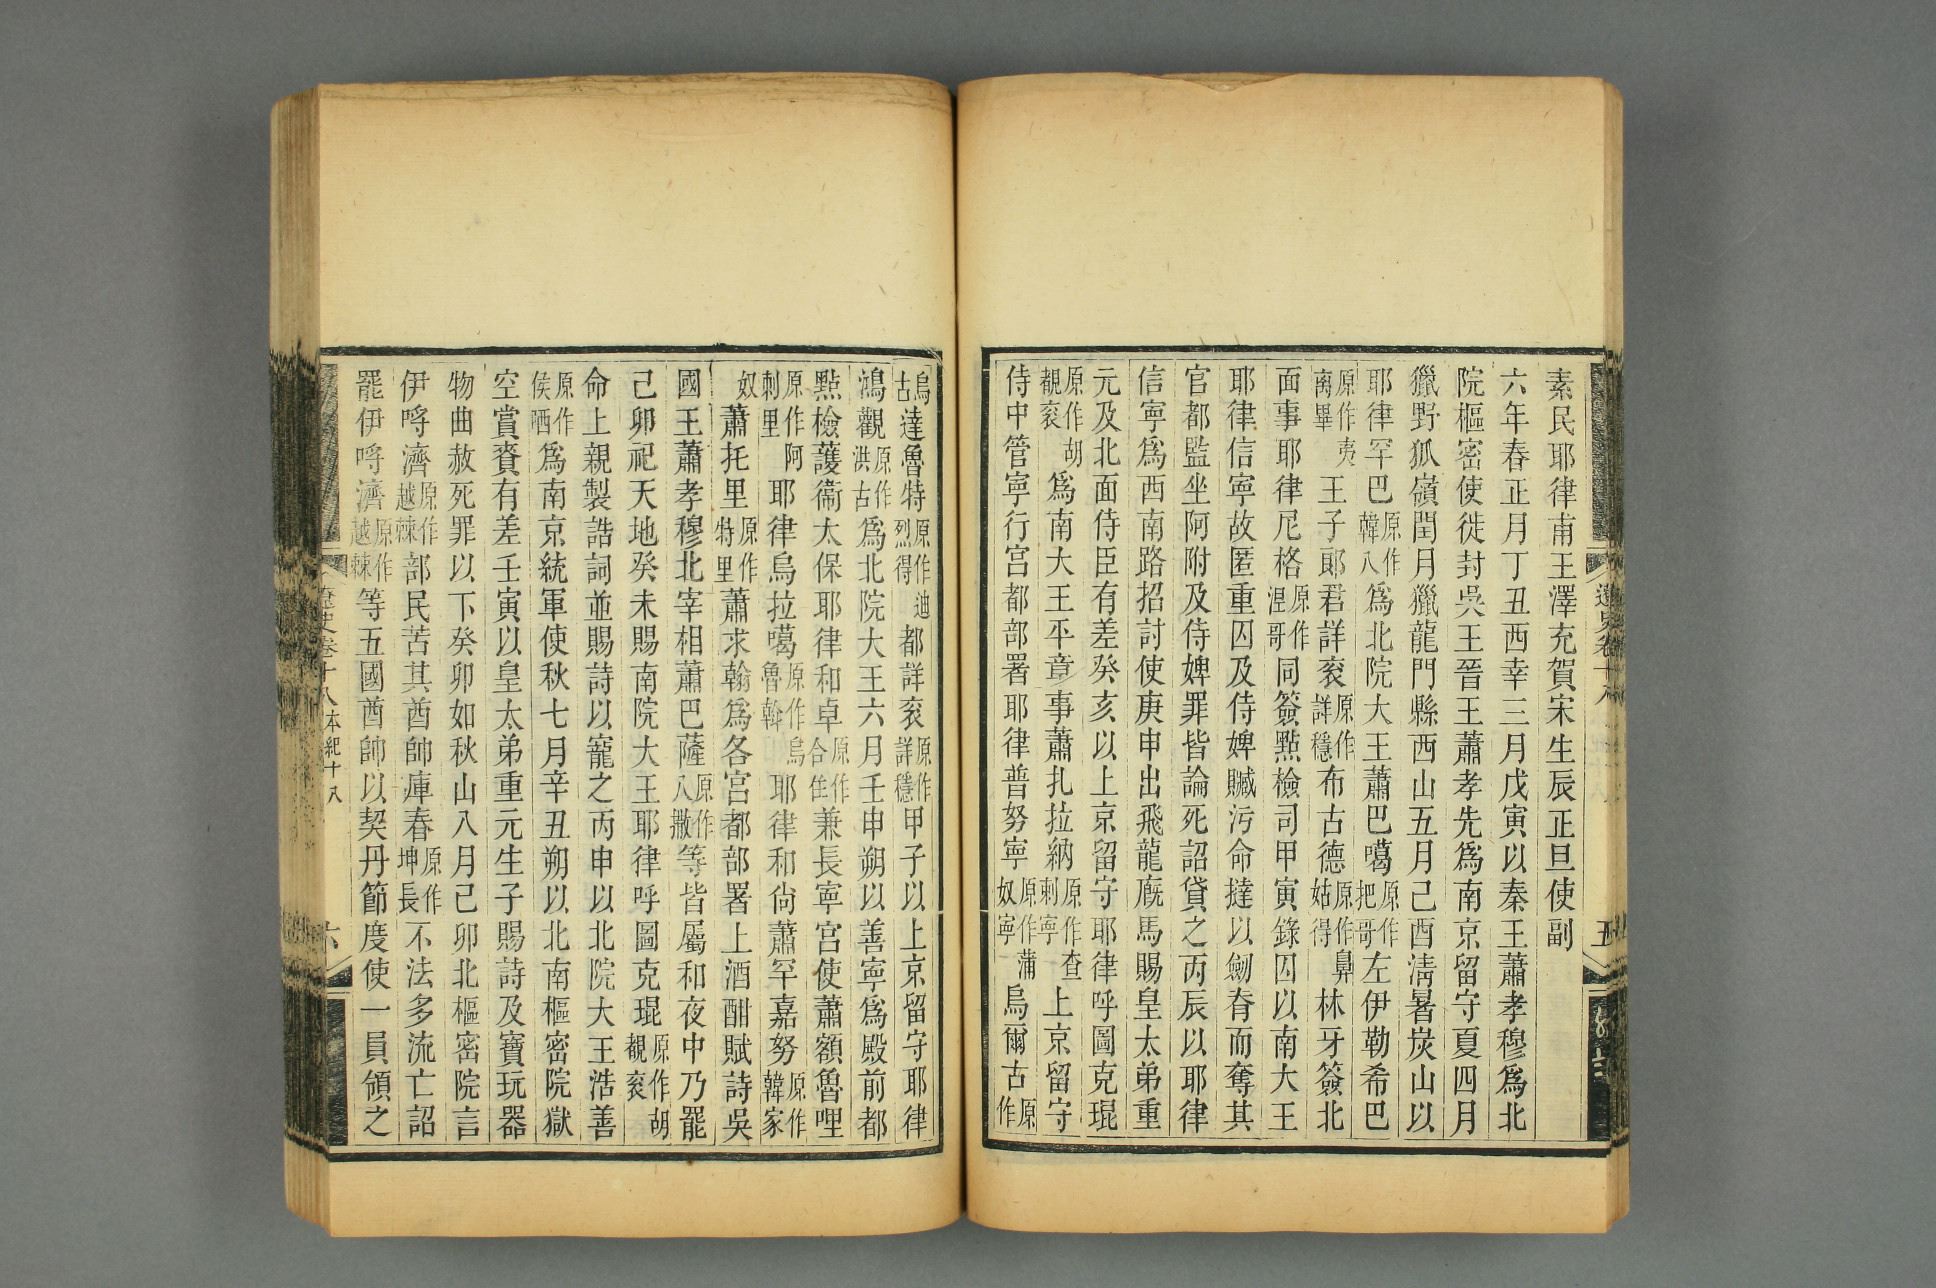 素民耶律甫王澤充賀宋生辰正旦使副
六年春正月丁丑西幸三月戊寅以秦王蕭孝穆爲北
院樞密使徙封吳王晉王蕭孝先爲南京留守夏四月
獵野狐嶺閏月獵龍門縣西山五月己酉淸暑炭山以
耶律罕巴原作韓八爲北院大王蕭巴噶原作把哥左伊勒希巴
原作夷离畢王子郞君詳衮原作詳穩布古德原作鼻姑得林牙簽北
面事耶律尼格原作涅哥同簽點檢司甲寅錄囚以南大王
耶律信寧故匿重囚及侍婢贓污命撻以劒脊而奪其
官都監坐阿附及侍婢罪皆論死詔貸之丙辰以耶律
信寧爲西南路招討使庚申出飛龍廐馬賜皇太弟重
元及北面侍臣有差癸亥以上京留守耶律呼圖克琨
原作胡覩衮爲南大王平章事蕭扎拉納原作查剌寧上京留守
侍中管寧行宫都部署耶律普努寧原作蒲奴寧烏爾古原作
烏古達魯特原作迪烈得都詳衮原作詳穩甲子以上京留守耶律
鴻觀原作洪古爲北院大王六月壬申朔以善寧爲殿前都
點檢護衞太保耶律和卓原作合住兼長寧宫使蕭額魯哩
原作阿剌里耶律烏拉噶原作烏魯斡耶律和尙蕭罕嘉努原作韓家
奴蕭托里原作特里蕭求翰爲各宮都部署上酒酣賦詩吳
國王蕭孝穆北宰相蕭巴薩原作八撒等皆屬和夜中乃罷
己卯祀天地癸未賜南院大王耶律呼圖克琨原作胡覩衮
命上親製誥詞並賜詩以寵之丙申以北院大王浩善
原作侯哂爲南京統軍使秋七月辛丑朔以北南樞密院獄
空賞賚有差壬寅以皇太弟重元生子賜詩及寶玩器
物曲赦死罪以下癸卯如秋山八月己卯北樞密院言
伊哷濟原作越棘部民苦其酋帥庫春原作坤長不法多流亡詔
罷伊哷濟原作越棘等五國酋帥以契丹節度使一員領之
遼史卷十八 本紀十八
六
遼史卷十八
五